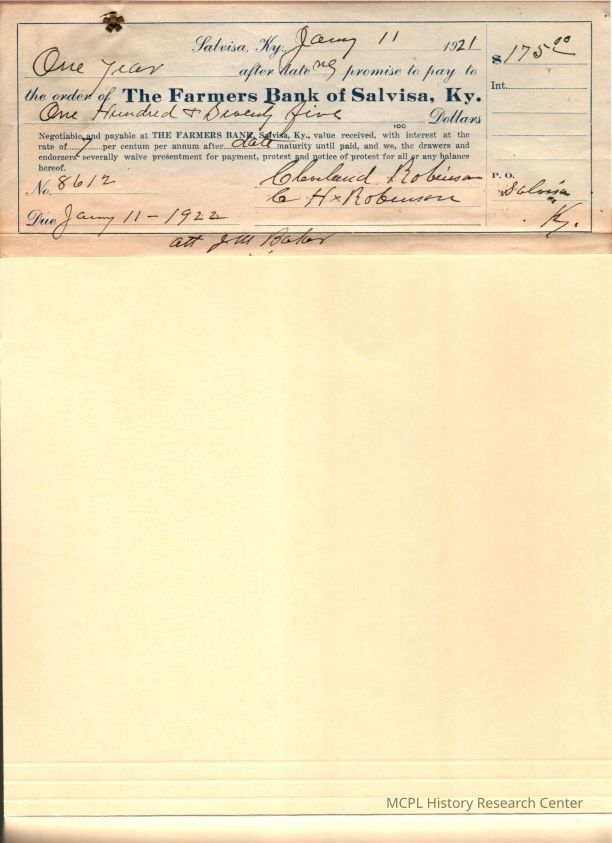 Salvisa, Ky., Jany 11 1921
$ 175 00
One year after date we promise to pay to
the order of The Farmers Bank of Salvisa, Ky.
Int.
One Hundred & Seventy five Dollars
100
Negotiable and payable at THE FARMERS BANK, Salvisa, Ky., value received, with interest at the
rate of 7 per centum per annum after date maturity until paid, and we, the drawers and
endorsers severally waive presentment for payment, protest and notice of protest for all or any balance
hereof.
No. 8612
Cleveland Robinson
C H x Robinson
P. O. Salvisa
Ky.
Due Jany 11 - 1922
att J M Baker
MCPL History Research Center